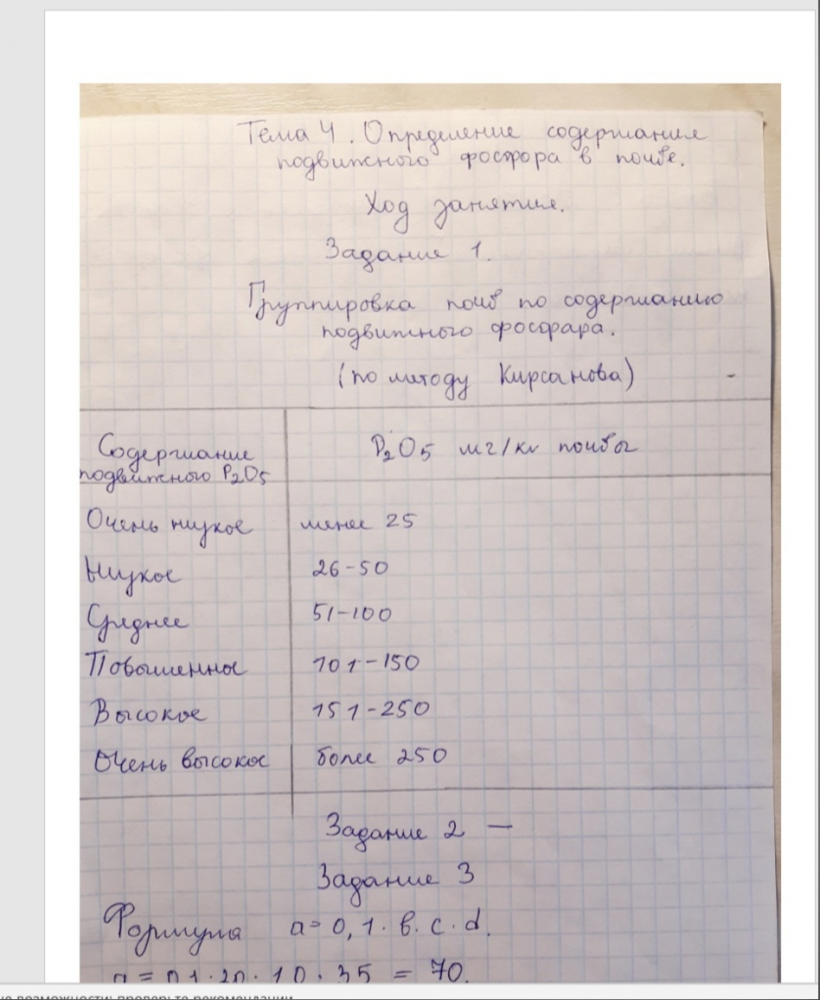 Тема 4. Определение содержания
подвижного фосфора в почве.
Ход занятия.
Задание 1.
Группировка почв по содержанию
подвижного фосфара.
(по методу Кирсанова)
Содержание
подвижного P₂O₅
P₂O₅ мг/кг почвы
Очень низкое менее 25
Низкое 26-50
Среднее 51-100
Повышенное 101-150
Высокое 151-250
Очень высокое более 250
Задание 2 —
Задание 3
Формула a = 0,1 · b · c · d.
a = 0,1 · 20 · 10 · 35 = 70.